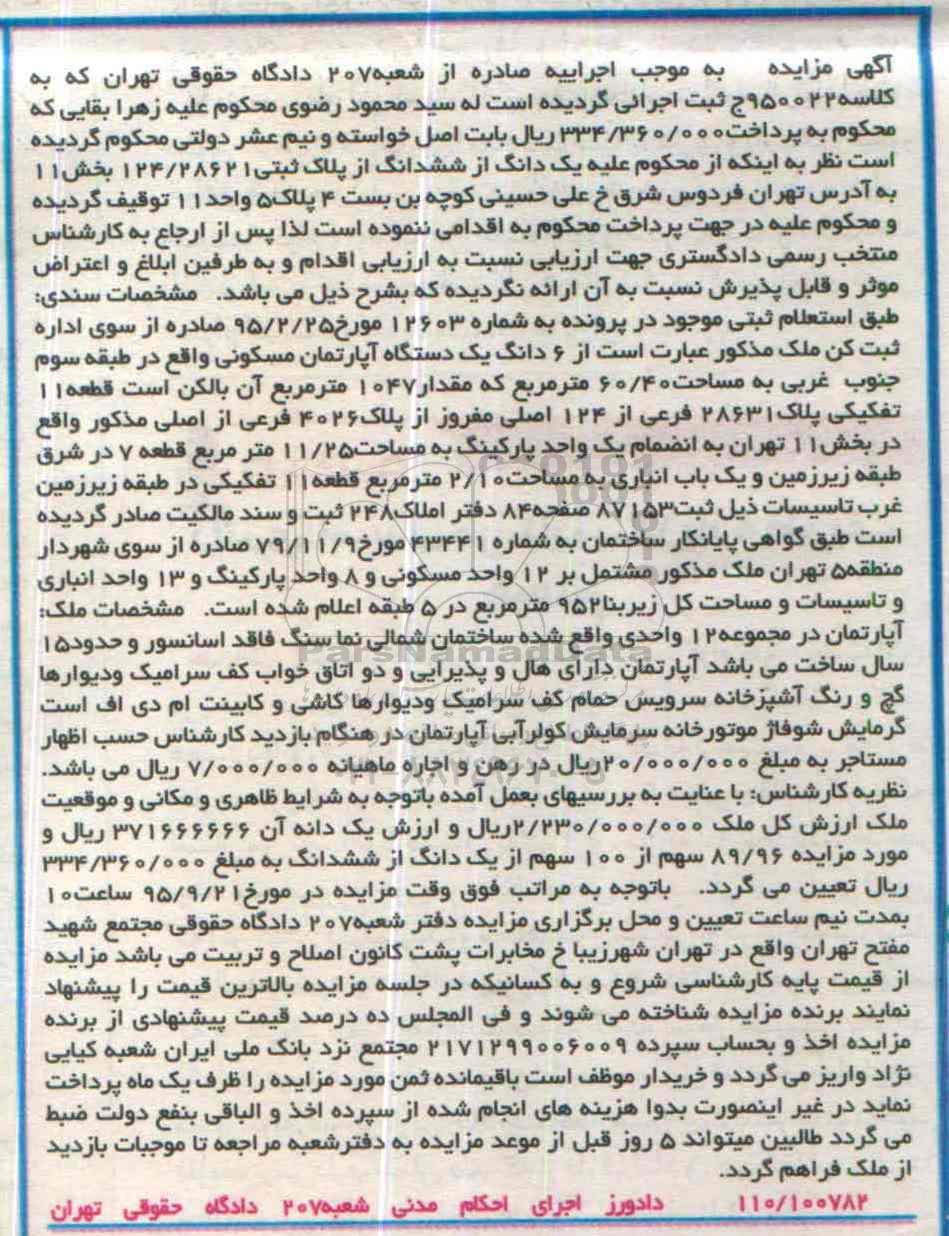 آگهی مزایده به موجب اجراییه صادره از شعبه۲۰۷ دادگاه حقوقی تهران که به
کلاسه۹۵۰۰۲۲ج ثبت اجرائی گردیده است له سید محمود رضوی محکوم علیه زهرا بقایی که
محکوم به پرداخت۳۳۴/۳۶۰/۰۰۰ ریال بابت اصل خواسته و نیم عشر دولتی محکوم گردیده
است نظر به اینکه از محکوم علیه یک دانگ از ششدانگ از پلاک ثبتی۱۲۴/۲۸۶۲۱ بخش۱۱
به آدرس تهران فردوس شرق خ علی حسینی کوچه بن بست ۴ پلاک۵ واحد۱۱ توقیف گردیده
و محکوم علیه در جهت پرداخت محکوم به اقدامی ننموده است لذا پس از ارجاع به کارشناس
منتخب رسمی دادگستری جهت ارزیابی نسبت به ارزیابی اقدام و به طرفین ابلاغ و اعتراض
موثر و قابل پذیرش نسبت به آن ارائه نگردیده که بشرح ذیل می باشد. مشخصات سندی:
طبق استعلام ثبتی موجود در پرونده به شماره ۱۲۶۰۳ مورخ۹۵/۲/۲۵ صادره از سوی اداره
ثبت کن ملک مذکور عبارت است از ۶ دانگ یک دستگاه آپارتمان مسکونی واقع در طبقه سوم
جنوب غربی به مساحت۶۰/۴۰ مترمربع که مقدار۱۰۴۷ مترمربع آن بالکن است قطعه۱۱
تفکیکی پلاک۲۸۶۳۱ فرعی از ۱۲۴ اصلی مفروز از پلاک۴۰۲۶ فرعی از اصلی مذکور واقع
در بخش۱۱ تهران به انضمام یک واحد پارکینگ به مساحت۱۱/۲۵ متر مربع قطعه ۷ در شرق
طبقه زیرزمین و یک باب انباری به مساحت۲/۱۰ مترمربع قطعه۱۱ تفکیکی در طبقه زیرزمین
غرب تاسیسات ذیل ثبت۸۷۱۵۳ صفحه۸۴ دفتر املاک۲۴۸ ثبت و سند مالکیت صادر گردیده
است طبق گواهی پایانکار ساختمان به شماره ۴۳۴۴۱ مورخ۷۹/۱۱/۹ صادره از سوی شهردار
منطقه۵ تهران ملک مذکور مشتمل بر ۱۲ واحد مسکونی و ۸ واحد پارکینگ و ۱۳ واحد انباری
و تاسیسات و مساحت کل زیربنا۹۵۲ مترمربع در ۵ طبقه اعلام شده است. مشخصات ملک:
آپارتمان در مجموعه۱۲ واحدی واقع شده ساختمان شمالی نما سنگ فاقد اسانسور و حدود۱۵
سال ساخت می باشد آپارتمان دارای هال و پذیرایی و دو اتاق خواب کف سرامیک ودیوارها
گچ و رنگ آشپزخانه سرویس حمام کف سرامیک ودیوارها کاشی و کابینت ام دی اف است
گرمایش شوفاژ موتورخانه سرمایش کولرآبی آپارتمان در هنگام بازدید کارشناس حسب اظهار
مستاجر به مبلغ ۲۰/۰۰۰/۰۰۰ریال در رهن و اجاره ماهیانه ۷/۰۰۰/۰۰۰ ریال می باشد.
نظریه کارشناس: با عنایت به بررسیهای بعمل آمده باتوجه به شرایط ظاهری و مکانی و موقعیت
ملک ارزش کل ملک ۲/۲۳۰/۰۰۰/۰۰۰ریال و ارزش یک دانه آن ۳۷۱۶۶۶۶۶۶ ریال و
مورد مزایده ۸۹/۹۶ سهم از ۱۰۰ سهم از یک دانگ از ششدانگ به مبلغ ۳۳۴/۳۶۰/۰۰۰
ریال تعیین می گردد. باتوجه به مراتب فوق وقت مزایده در مورخ۹۵/۹/۲۱ ساعت۱۰
بمدت نیم ساعت تعیین و محل برگزاری مزایده دفتر شعبه۲۰۷ دادگاه حقوقی مجتمع شهید
مفتح تهران واقع در تهران شهرزیبا خ مخابرات پشت کانون اصلاح و تربیت می باشد مزایده
از قیمت پایه کارشناسی شروع و به کسانیکه در جلسه مزایده بالاترین قیمت را پیشنهاد
نمایند برنده مزایده شناخته می شوند و فی المجلس ده درصد قیمت پیشنهادی از برنده
مزایده اخذ و بحساب سپرده ۲۱۷۱۲۹۹۰۰۶۰۰۹ مجتمع نزد بانک ملی ایران شعبه کیایی
نژاد واریز می گردد و خریدار موظف است باقیمانده ثمن مورد مزایده را ظرف یک ماه پرداخت
نماید در غیر اینصورت بدوا هزینه های انجام شده از سپرده اخذ و الباقی بنفع دولت ضبط
می گردد طالبین میتواند ۵ روز قبل از موعد مزایده به دفترشعبه مراجعه تا موجبات بازدید
از ملک فراهم گردد.
۱۱۰/۱۰۰۷۸۲ دادورز اجرای احکام مدنی شعبه۲۰۷ دادگاه حقوقی تهران
ParsNamadData